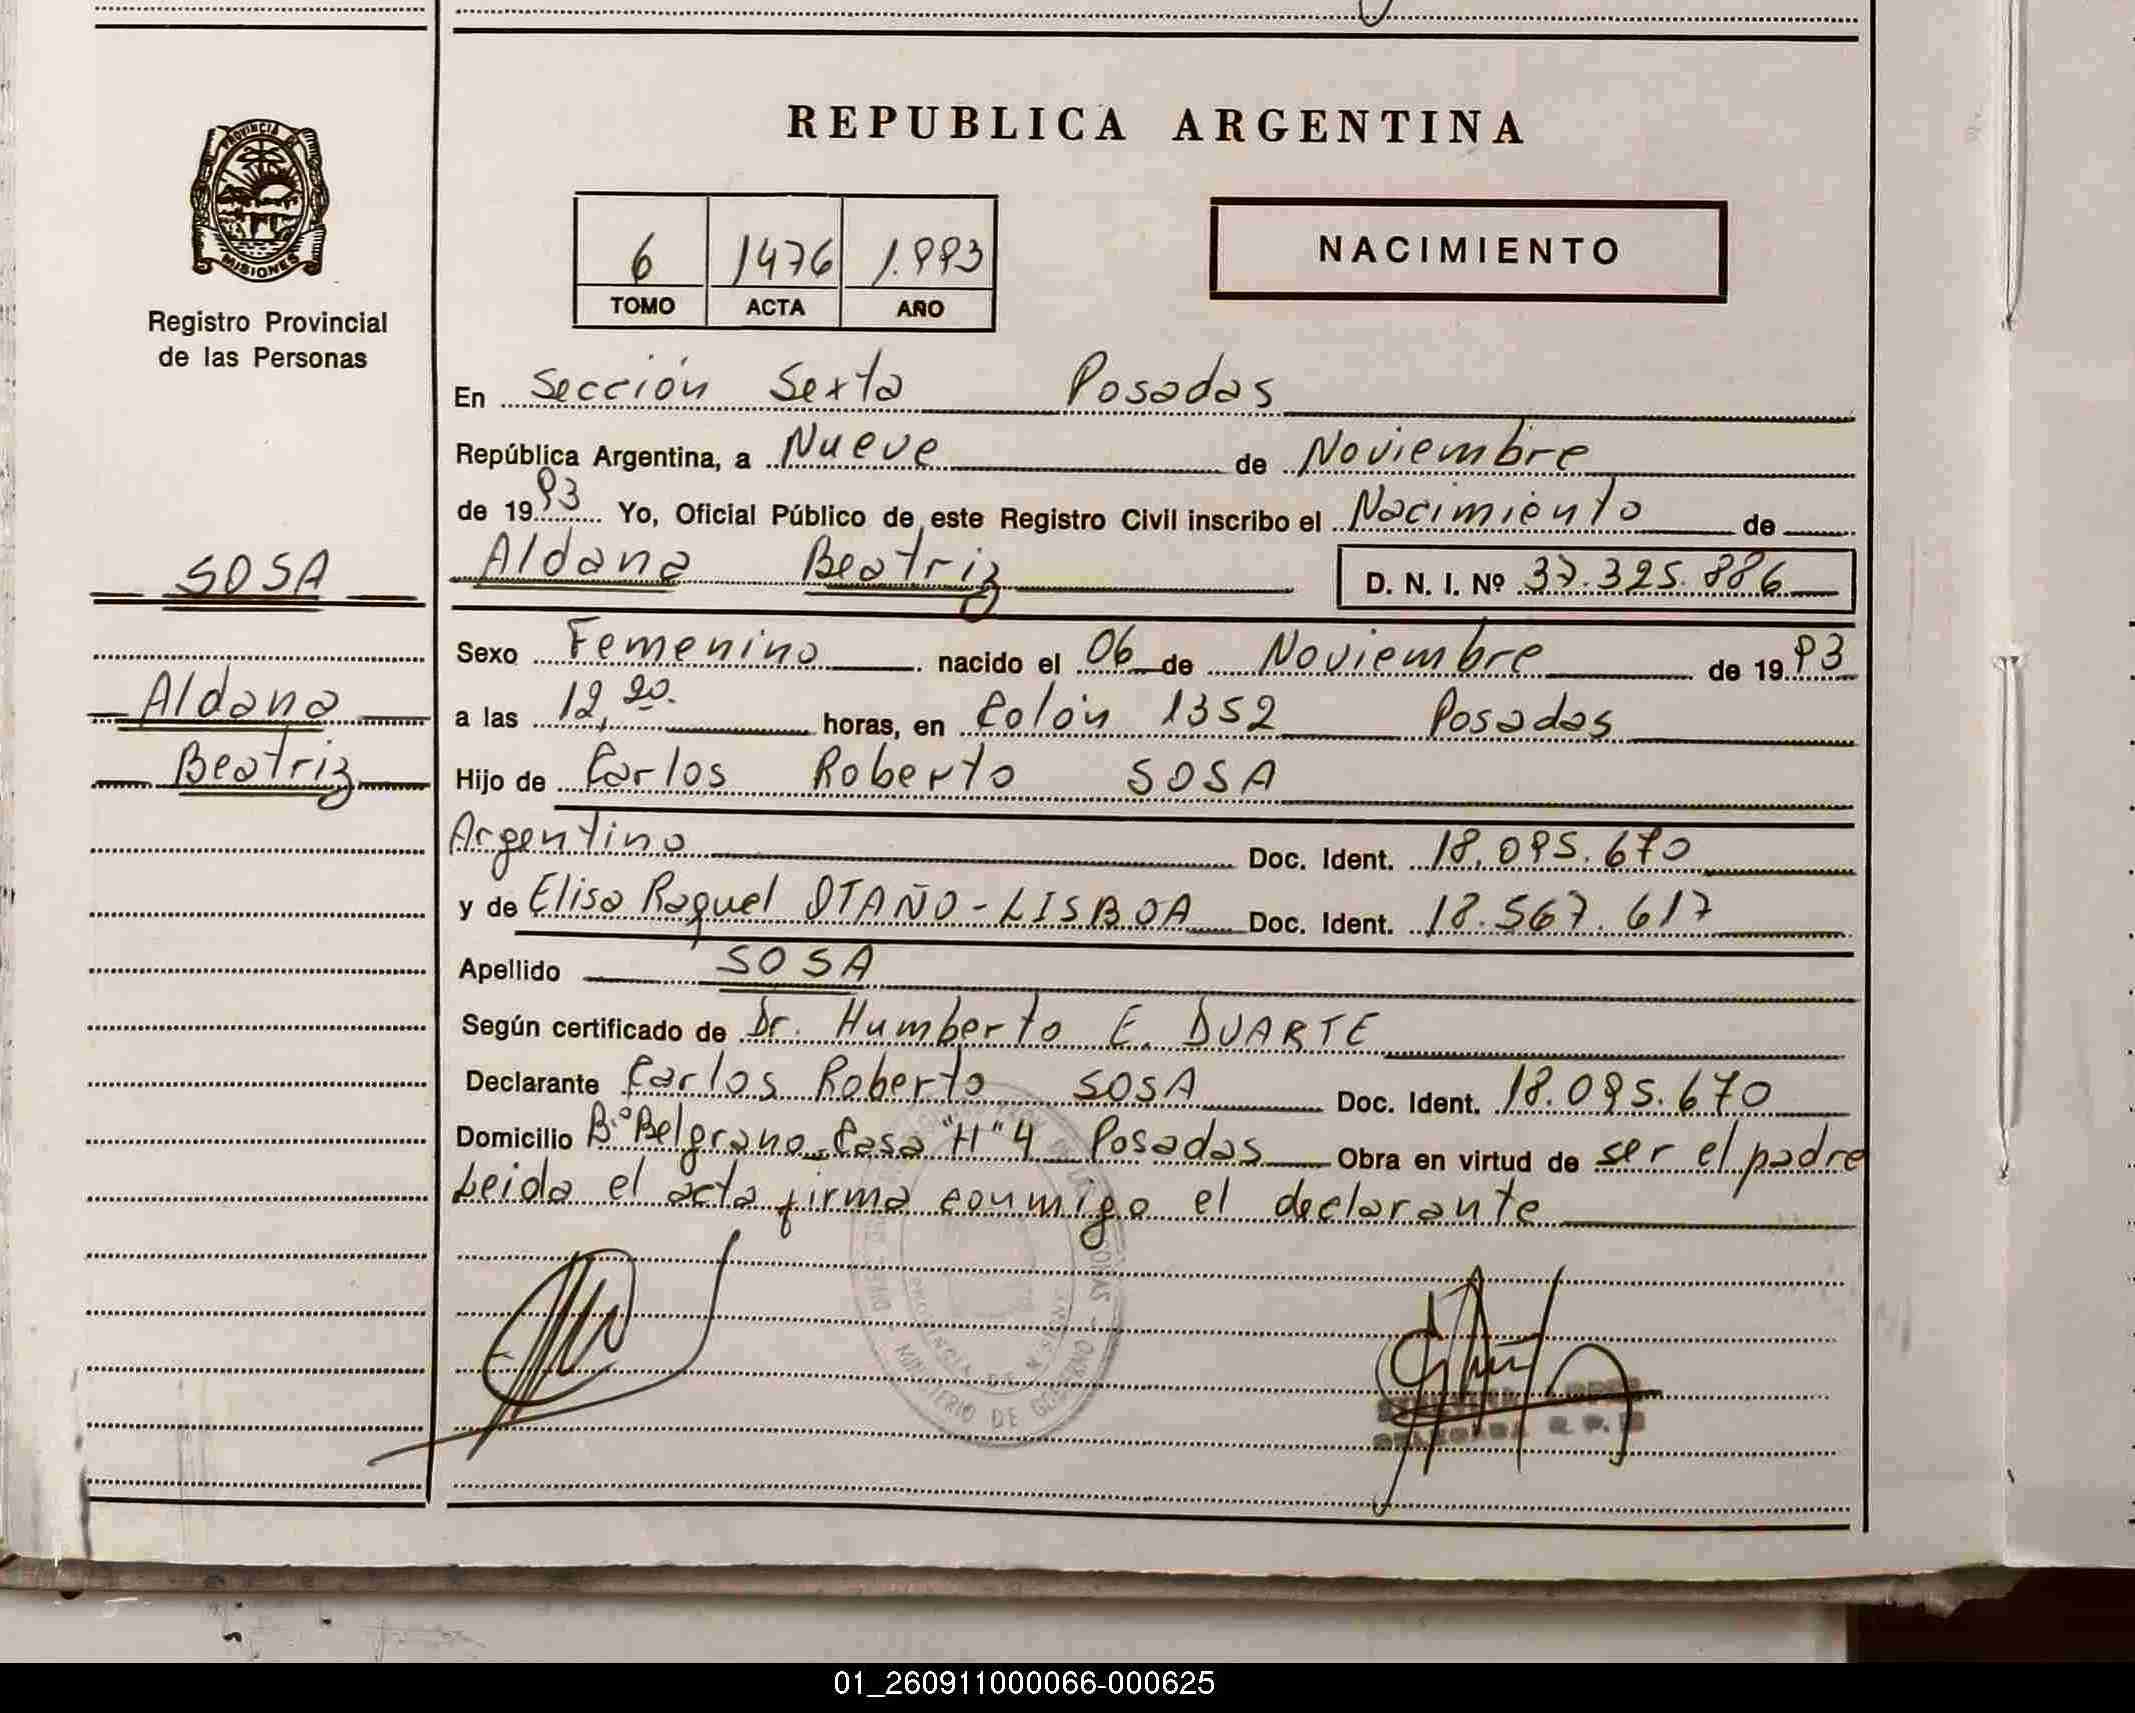 REPUBLICA ARGENTINA
PROVINCIA DE
MISIONES
Registro Provincial
de las Personas
6 1476 1.993
TOMO ACTA AÑO
NACIMIENTO
En Sección Sexta Posadas
República Argentina, a Nueve de Noviembre
de 1993 Yo, Oficial Público de este Registro Civil inscribo el Nacimiento de
SOSA
Aldana Beatriz D. N. I. Nº 37.325.886
Sexo Femenino nacido el 06 de Noviembre de 1993
Aldana
a las 12,20. horas, en Colón 1352 Posadas
Beatriz
Hijo de Carlos Roberto SOSA
Argentino Doc. Ident. 18.095.670
y de Elisa Raquel OTAÑO-LISBOA Doc. Ident. 18.567.617
Apellido SOSA
Según certificado de Dr. Humberto E. DUARTE
Declarante Carlos Roberto SOSA Doc. Ident. 18.095.670
Domicilio B.º Belgrano Casa "H" 4 Posadas Obra en virtud de ser el padre
Leida el acta firma conmigo el declarante
PROVINCIA DE MISIONES
MINISTERIO DE GOBIERNO
01_260911000066-000625